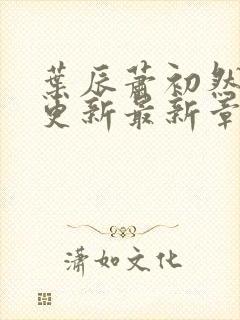 葉辰蕭初然
更新最新章
瀟如文化